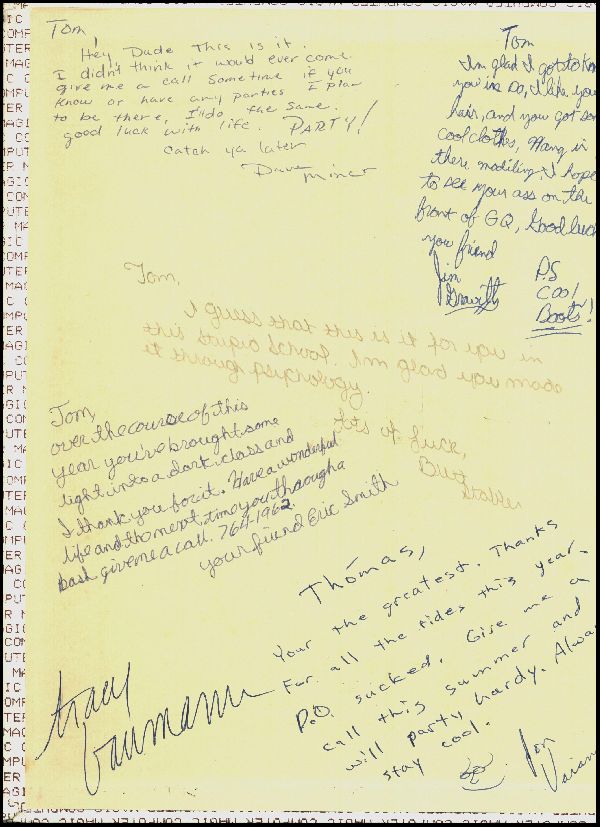 Tom,
Hey Dude This is it.
I didn't think it would ever come.
give me a call sometime if you
know or have any parties I plan
to be there, I'll do the same.
good luck with life. PARTY!
Catch ya later
Dave Miner
Tom
I'm glad I got to
you're so, I like you
hair, and you got som
cool clothes, Hang in
there modiling, I hope
to see your ass on the
front of GQ, Good luck
you friend
Jim
P.S
Cool
Boots!
Tom,
I guess that this is it for you in
this stupid school. I'm glad you made
it through psychology.
Lots of luck,
Tom,
over the course of this
year you've brought some
light into a dark class and
I thank you for it. Have a wonderful
life and the next time you through a
bash give me a call. 764-1962
your friend Eric Smith
Thomas,
Your the greatest. Thanks
for all the rides this year.
P.O. sucked. Give me a
call this summer and
will party hardy. Alwa
stay cool.
Jon
Tracy
Baumann